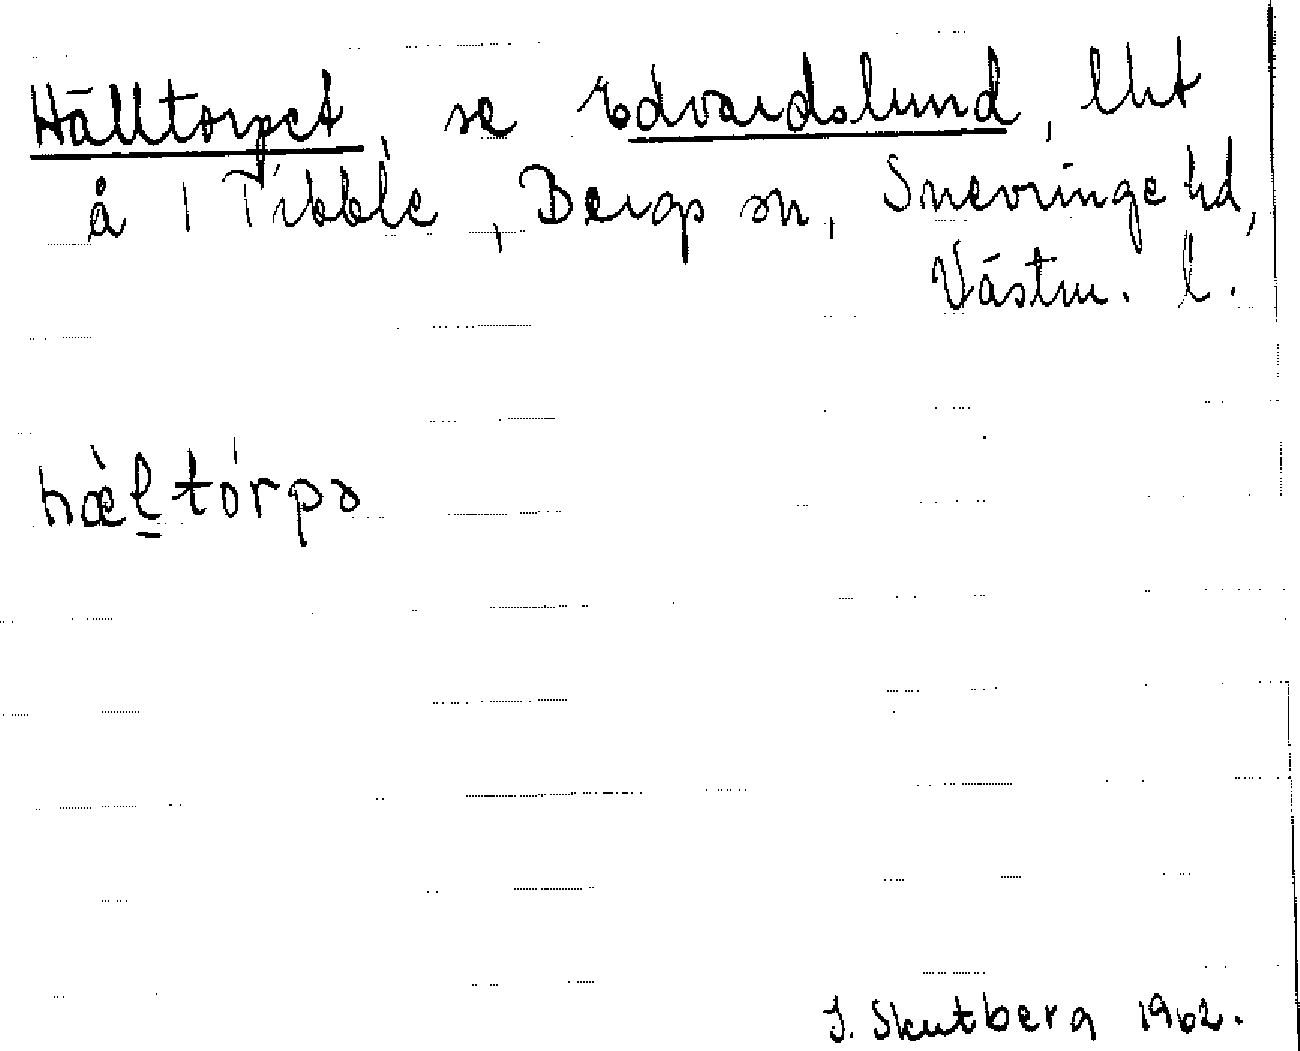 Hälltorpet, se Edvardslund, lht
å 1 Tibble, Bergs sn, Snevringe hd,
Västm. l.
hæ̀l̠tórpə
I. Skutberg 1962.